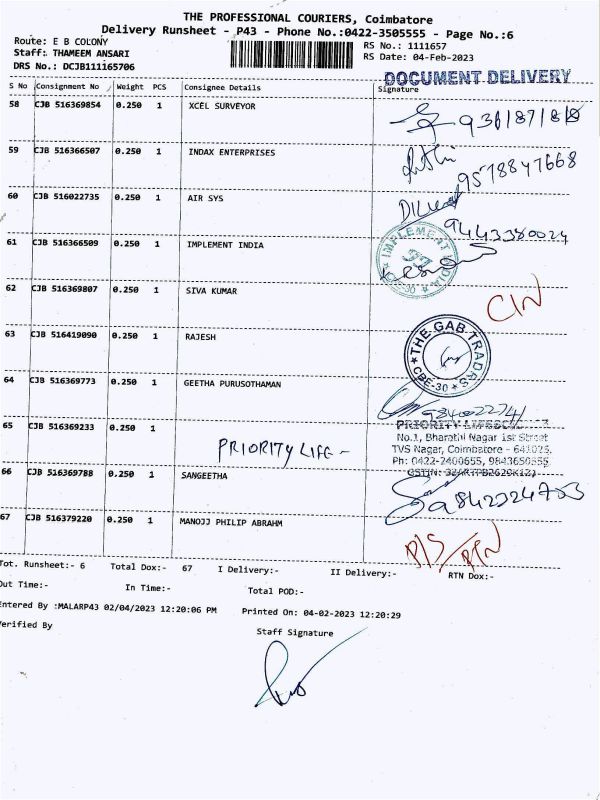 THE PROFESSIONAL COURIERS, Coimbatore
Delivery Runsheet - P43 - Phone No.:0422-3505555 - Page No.:6
Route: E B COLONY RS No.: 1111657
Staff: THAMEEM ANSARI RS Date: 04-Feb-2023
DRS No.: DCJB111165706
DOCUMENT DELIVERY
S No Consignment No Weight PCS Consignee Details Signature
58 CJB 516369854 0.250 1 XCEL SURVEYOR
59 CJB 516366507 0.250 1 INDAX ENTERPRISES
9578847668
60 CJB 516022735 0.250 1 AIR SYS
9443380024
61 CJB 516366509 0.250 1 IMPLEMENT INDIA
IMPLEMENT INDIA
62 CJB 516369807 0.250 1 SIVA KUMAR
C/N
63 CJB 516419090 0.250 1 RAJESH
THE GAB TRADRS
CBE-30
64 CJB 516369773 0.250 1 GEETHA PURUSOTHAMAN
65 CJB 516369233 0.250 1
PRIORITY LIFE -
No.1, Bharathi Nagar 1st Street
TVS Nagar, Coimbatore - 641025.
Ph: 0422-2400655,
66 CJB 516369788 0.250 1 SANGEETHA
67 CJB 516379220 0.250 1 MANOJJ PHILIP ABRAHM
D/S
RTN
Tot. Runsheet:- 6 Total Dox:- 67 I Delivery:- II Delivery:- RTN Dox:-
Out Time:- In Time:- Total POD:-
Entered By :MALARP43 02/04/2023 12:20:06 PM Printed On: 04-02-2023 12:20:29
Verified By Staff Signature